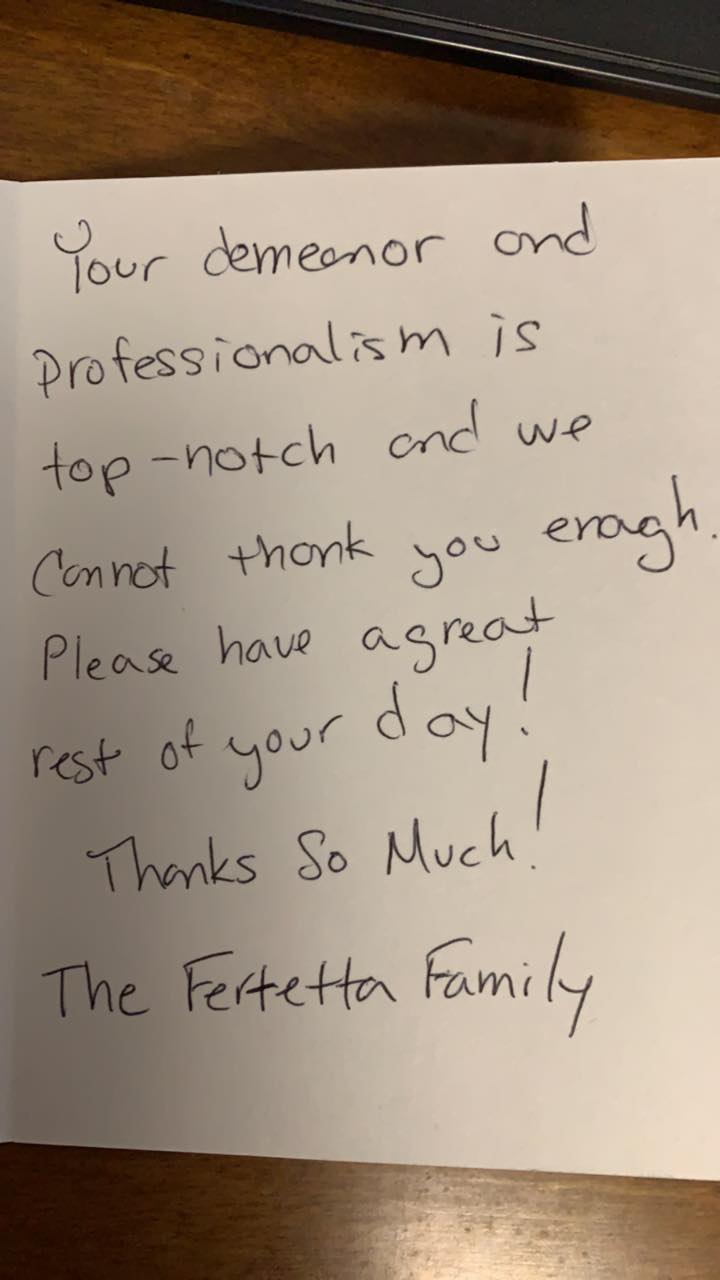 Your demeanor and
professionalism is
top-notch and we
Cannot thank you enough.
Please have a great
rest of your day!
Thanks So Much!
The Fertetta Family